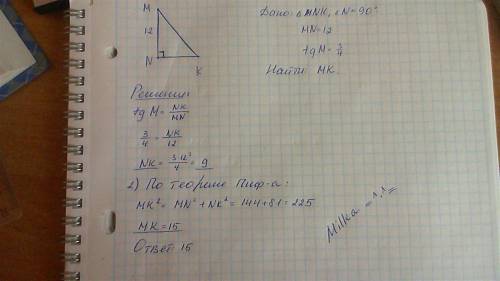 M
12
N
K
Дано: △MNK, ∠N=90°
MN=12
tgM=3/4
Найти MK.
Решение
tg M = NK/MN
3/4 = NK/12
NK = 3·12³/4 = 9
2) По теореме Пиф-а:
MK² = MN² + NK² = 144+81=225
MK=15
Ответ 15
Milka =^.^=